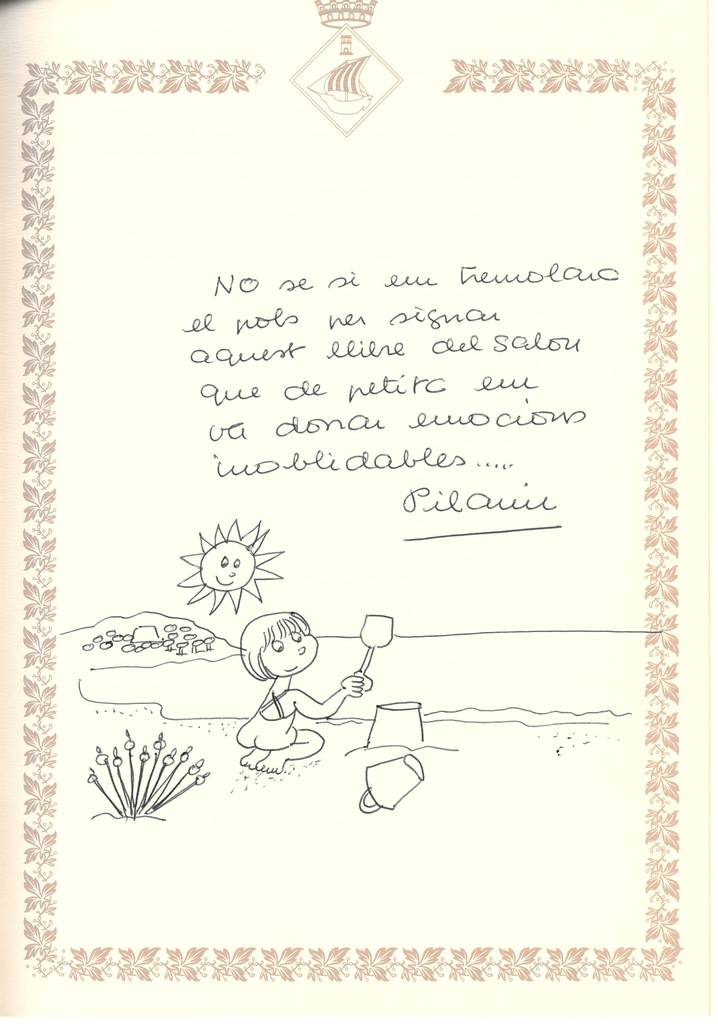 No se si em tremolara
el pols per signar
aquest llibre del Salou
que de petita em
va donar emocions
inoblidables.....
Pilarin